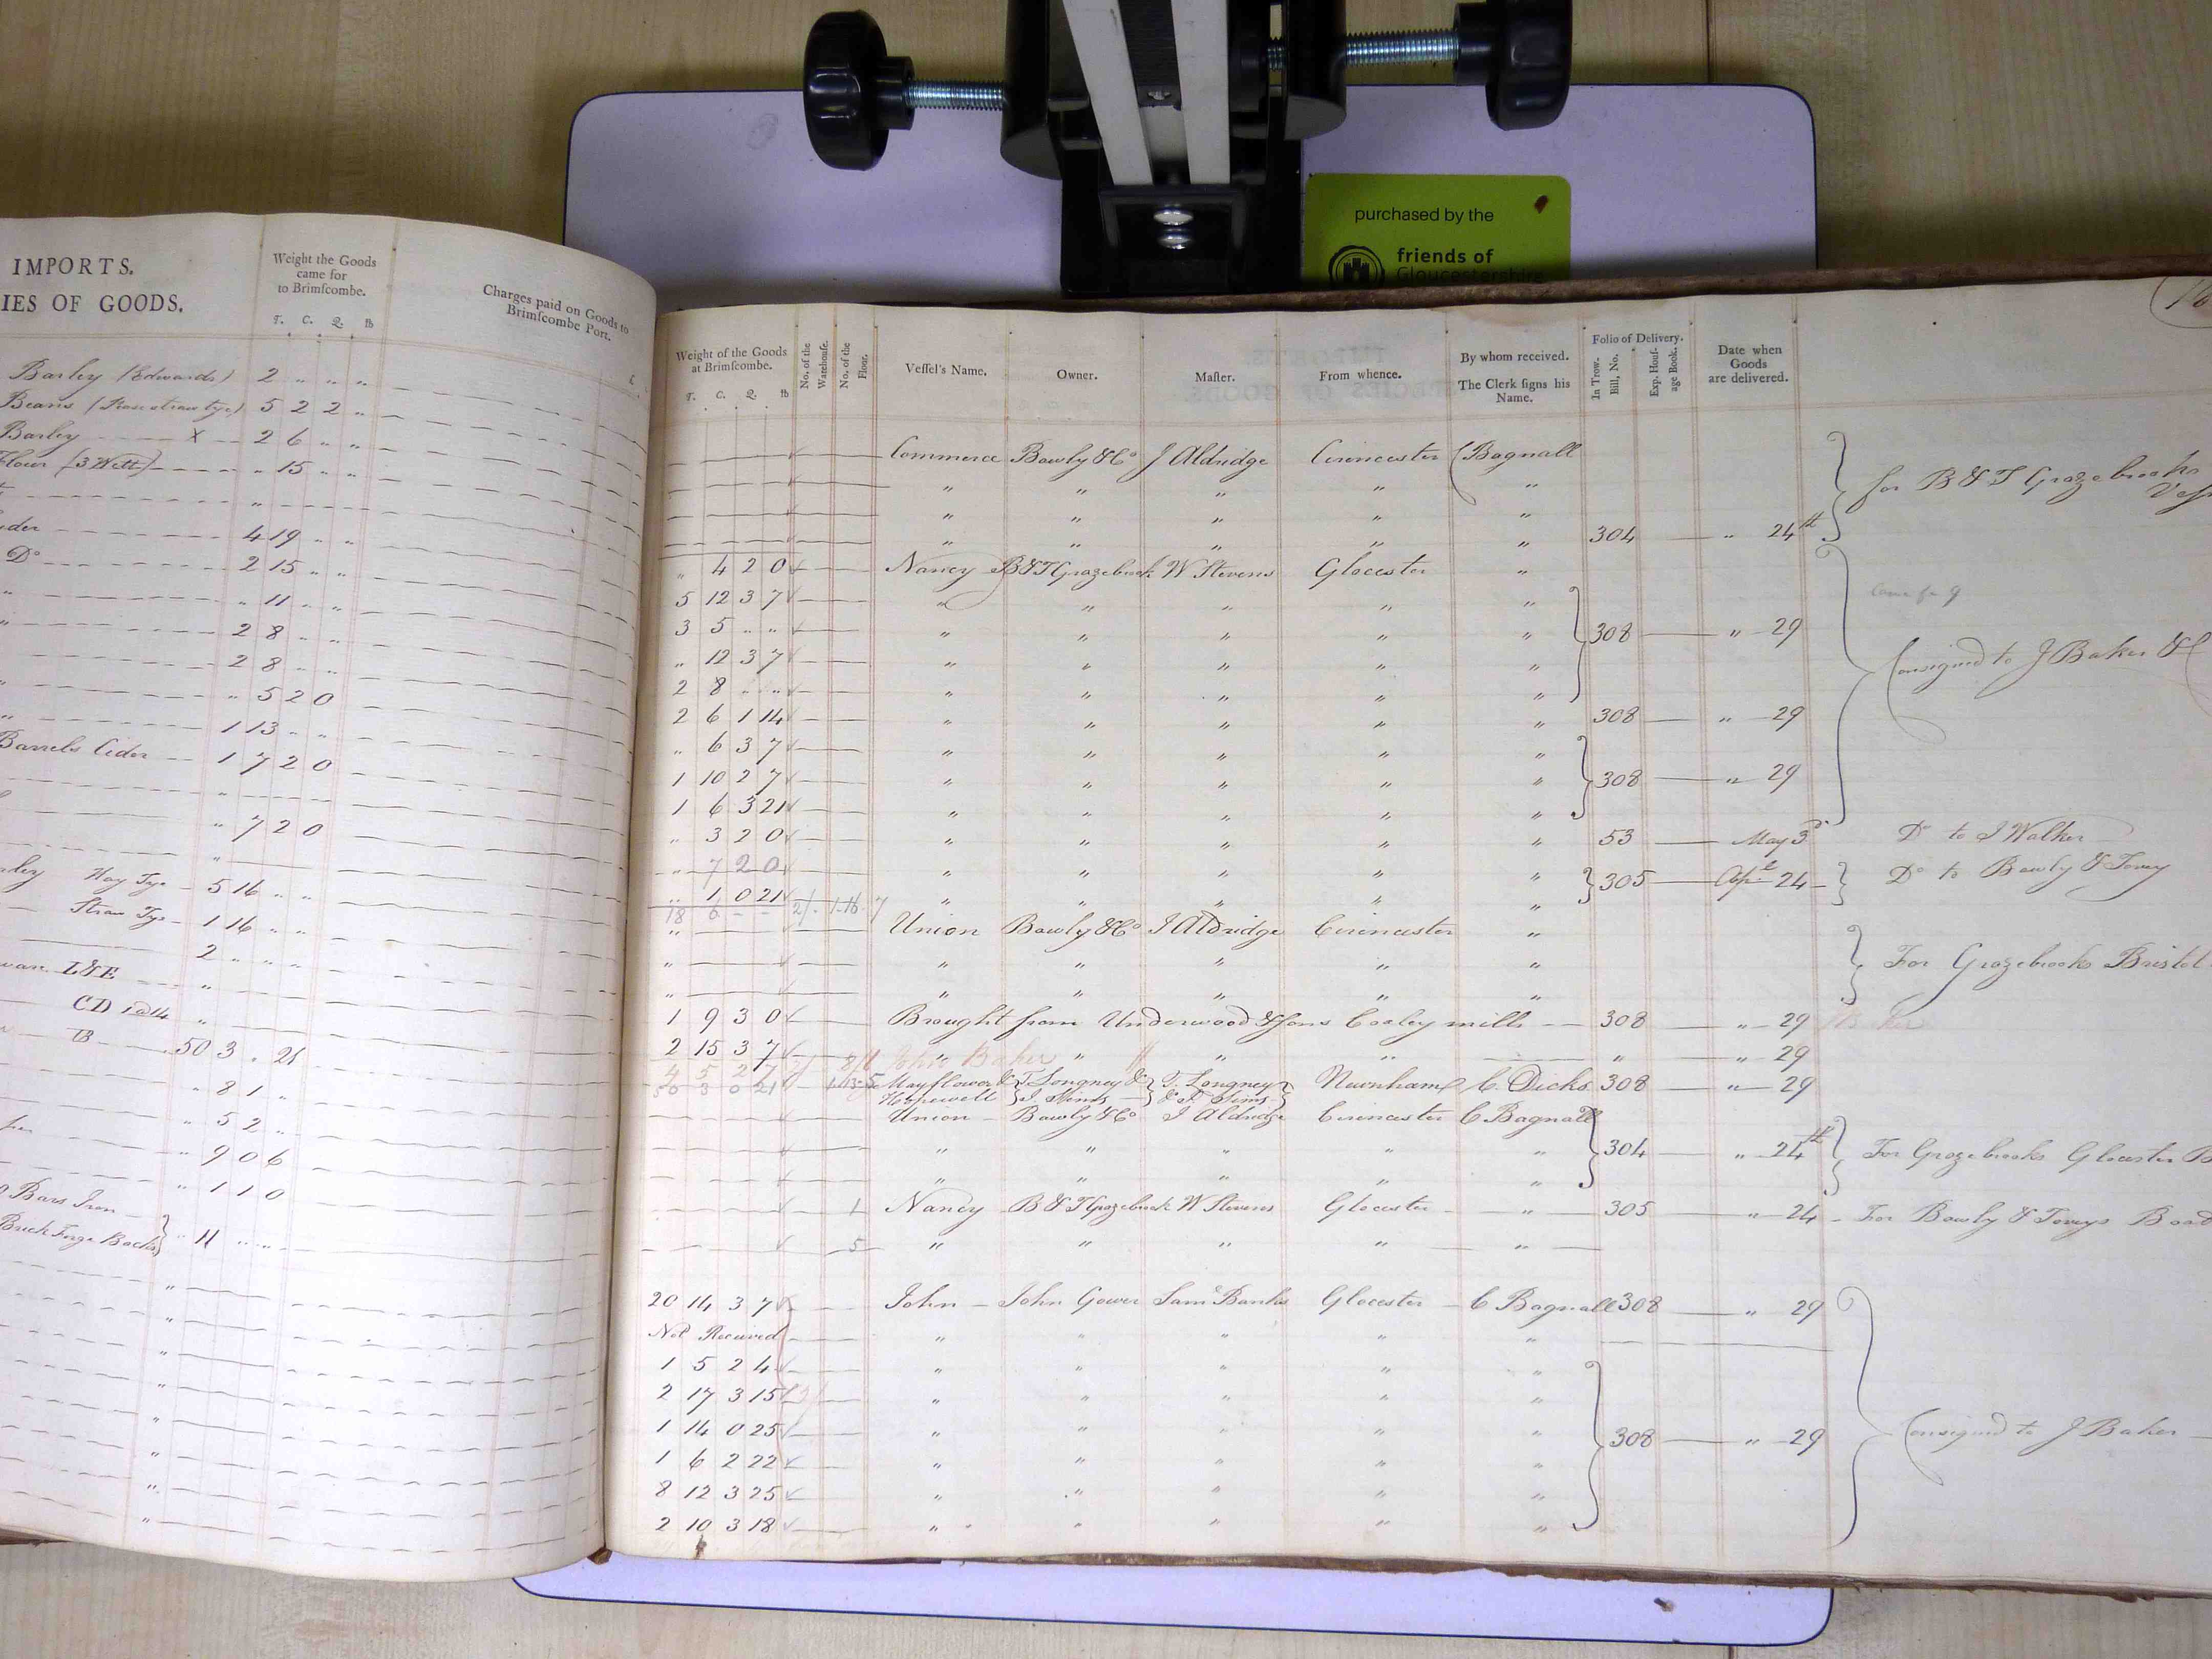 purchased by the
friends of
Gloucestershire
IMPORTS.
IES OF GOODS.
Weight the Goods
came for
to Brimſcombe.
T. C. Q. lb
Charges paid on Goods to
Brimſcombe Port.
£
Barley (Edwards) 2 " " "
Beans 5 2 2 "
Barley X 2 6 " "
Flour " 15 " "
"
4 19 " "
Do 2 15 " "
" " 11 " "
" 2 8 " "
2 8 " "
" " 5 2 0
" 1 13 " "
Barrels Cider 1 7 2 0
"
" 7 2 0
"
Hay Tye 5 16 " "
Straw Tye 1 16 " "
2 " " "
L&E "
CD 1@14 "
B 50 3 . 21
" 8 1 "
" 5 2 "
" 9 0 6
" 1 1 0
Bars Iron
Brick Forge Backs } " 11 " "
Weight of the Goods
at Brimſcombe.
T. C. Q. lb
No. of the
Warehouſe.
No. of the
Floor.
Veſſel's Name.
Owner.
Maſter.
From whence.
By whom received.
The Clerk ſigns his
Name.
Folio of Delivery.
In Trow.
Bill, No.
Exp. Houſ-
age Book.
Date when
Goods
are delivered.
Commerce Bowly & Co J Aldridge Cirencester Bagnall
" " " " "
" " " " "
" " " " " 304 " 24th
for B & T Grazebrooks
" 4 2 0 Nancy B&T Grazebrook W Stevens Glocester "
5 12 3 7 " " " " "
3 5 " " " " " " " 308 " 29
" 12 3 7 " " " " "
2 8 " " " " " " "
Consigned to J Baker &
2 6 1 14 " " " " " 308 " 29
" 6 3 7 " " " " "
1 10 2 7 " " " " " 308 " 29
1 6 3 21 " " " " "
" 3 2 0 " " " " " 53 May 3d Do to J Walker
" 7 2 0 " " " " " 305 Apl 24 Do to Bowly & Tovey
" 1 0 21 " " " " "
18 6 - -
" Union Bowly & Co J Aldridge Cirencester "
" " " " " "
For Grazebrooks Bristol
" " " " " "
1 9 3 0 Brought from Underwood & Sons Coaley mills 308 " 29
2 15 3 7 " " " " " " 29
John Baker
4 5 2 7
50 3 0 21 Mayflower & T Longney & T. Longney Newnham C. Dicks 308 " 29
Hopewell J. Sims & J. Sims
Union Bowly & Co J Aldridge Cirencester C Bagnall
" " " " " 304 " 24th For Grazebrooks Glocester B
" " " " "
1 Nancy B & T Grazebrook W Stevens Glocester " 305 " 24 For Bowly & Toveys Boat
5 " " " " "
20 14 3 7 John John Gower Saml Banks Glocester C Bagnall 308 " 29
Not Received " " " " "
1 5 2 4 " " " " "
2 17 3 15 " " " " "
1 14 0 25 " " " " " 308 " 29 Consigned to J Baker
1 6 2 22 " " " " "
8 12 3 25 " " " " "
2 10 3 18 " " " " "